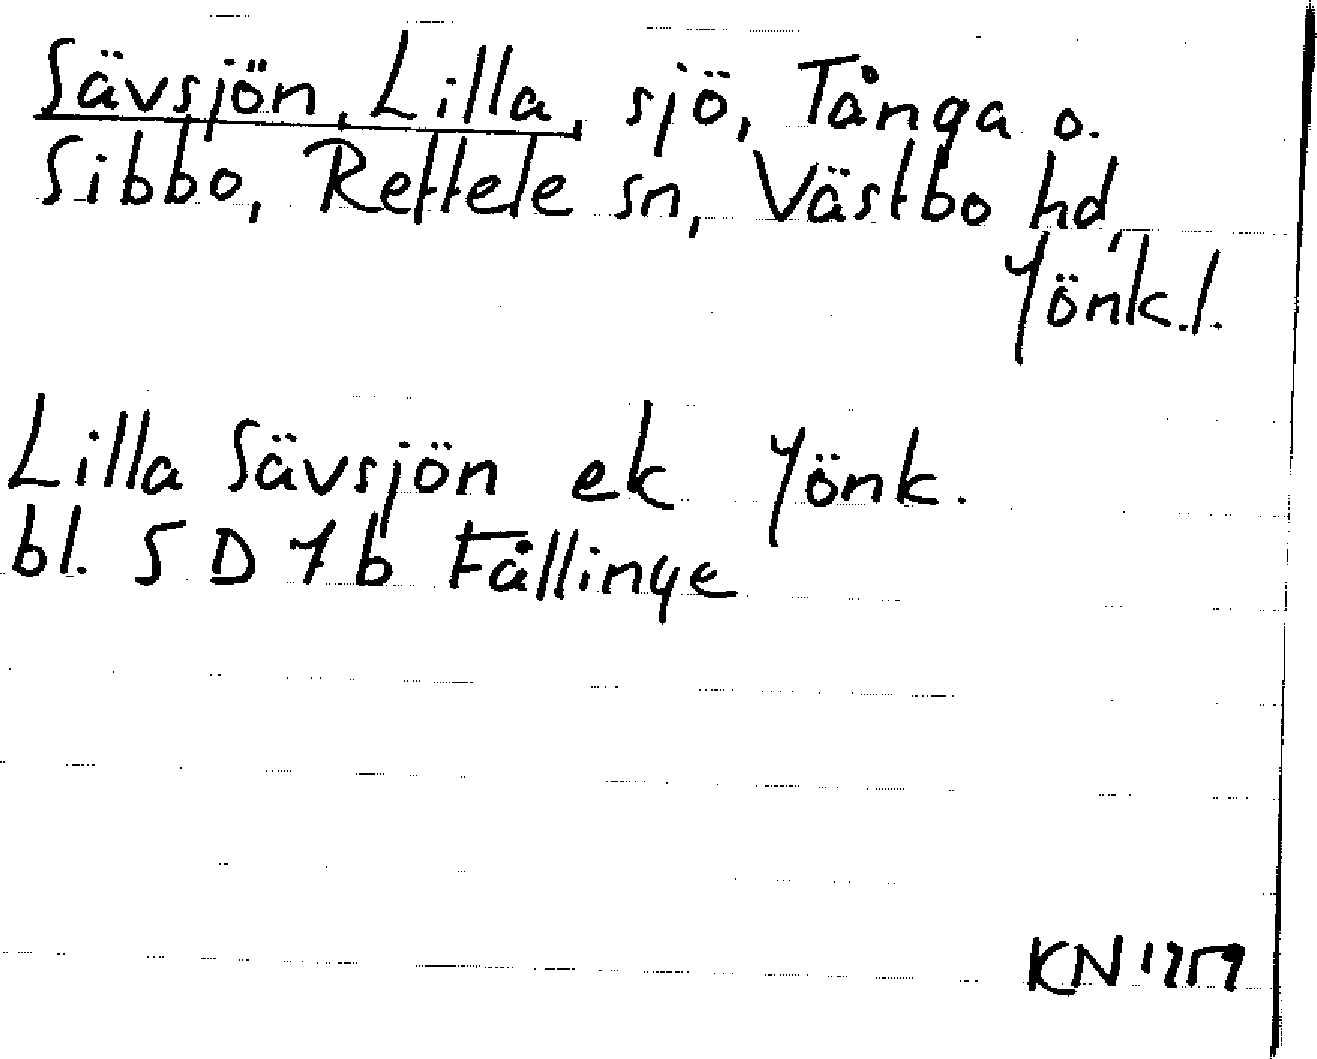 Sävsjön, Lilla, sjö, Tånga o.
Sibbo, Reftele sn, Västbo hd,
Jönk.l.
Lilla Sävsjön ek Jönk.
bl. 5 D 7 b Fållinge
KN